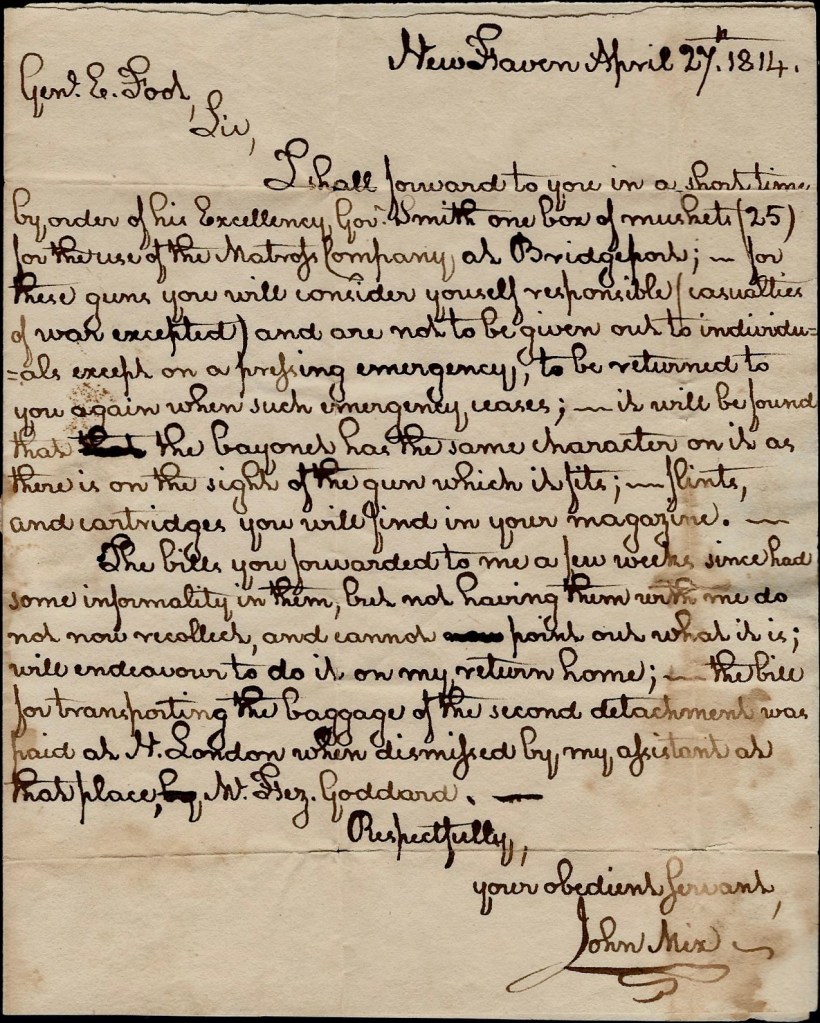 New Haven April 27.th 1814.
Genl. E. Foot,
Sir,
I shall forward to you in a short time,
by order of his Excellency, Govr. Smith one box of muskets (25)
for the use of the Matross Company, at Bridgeport; — for
these guns you will consider youself responsible (casualties
of war excepted) and are not to be given out to individu=
=als except on a pressing emergency, to be returned to
you again when such emergency ceases; — it will be found
that that the bayonet has the same character on it as
there is on the sight of the gun which it fits; — flints,
and cartridges you will find in your magazine. —
The bills you forwarded to me a few weeks since had
some informality in them, but not having them with me do
not now recollect, and cannot now point out what it is;
will endeavour to do it on my return home; — the bill
for transporting the baggage of the second detachment was
paid at N. London when dismissed by, my assistant at
that place, by, Mr. Hez. Goddard. —
Respectfully,
your obedient Servant,
John Mix